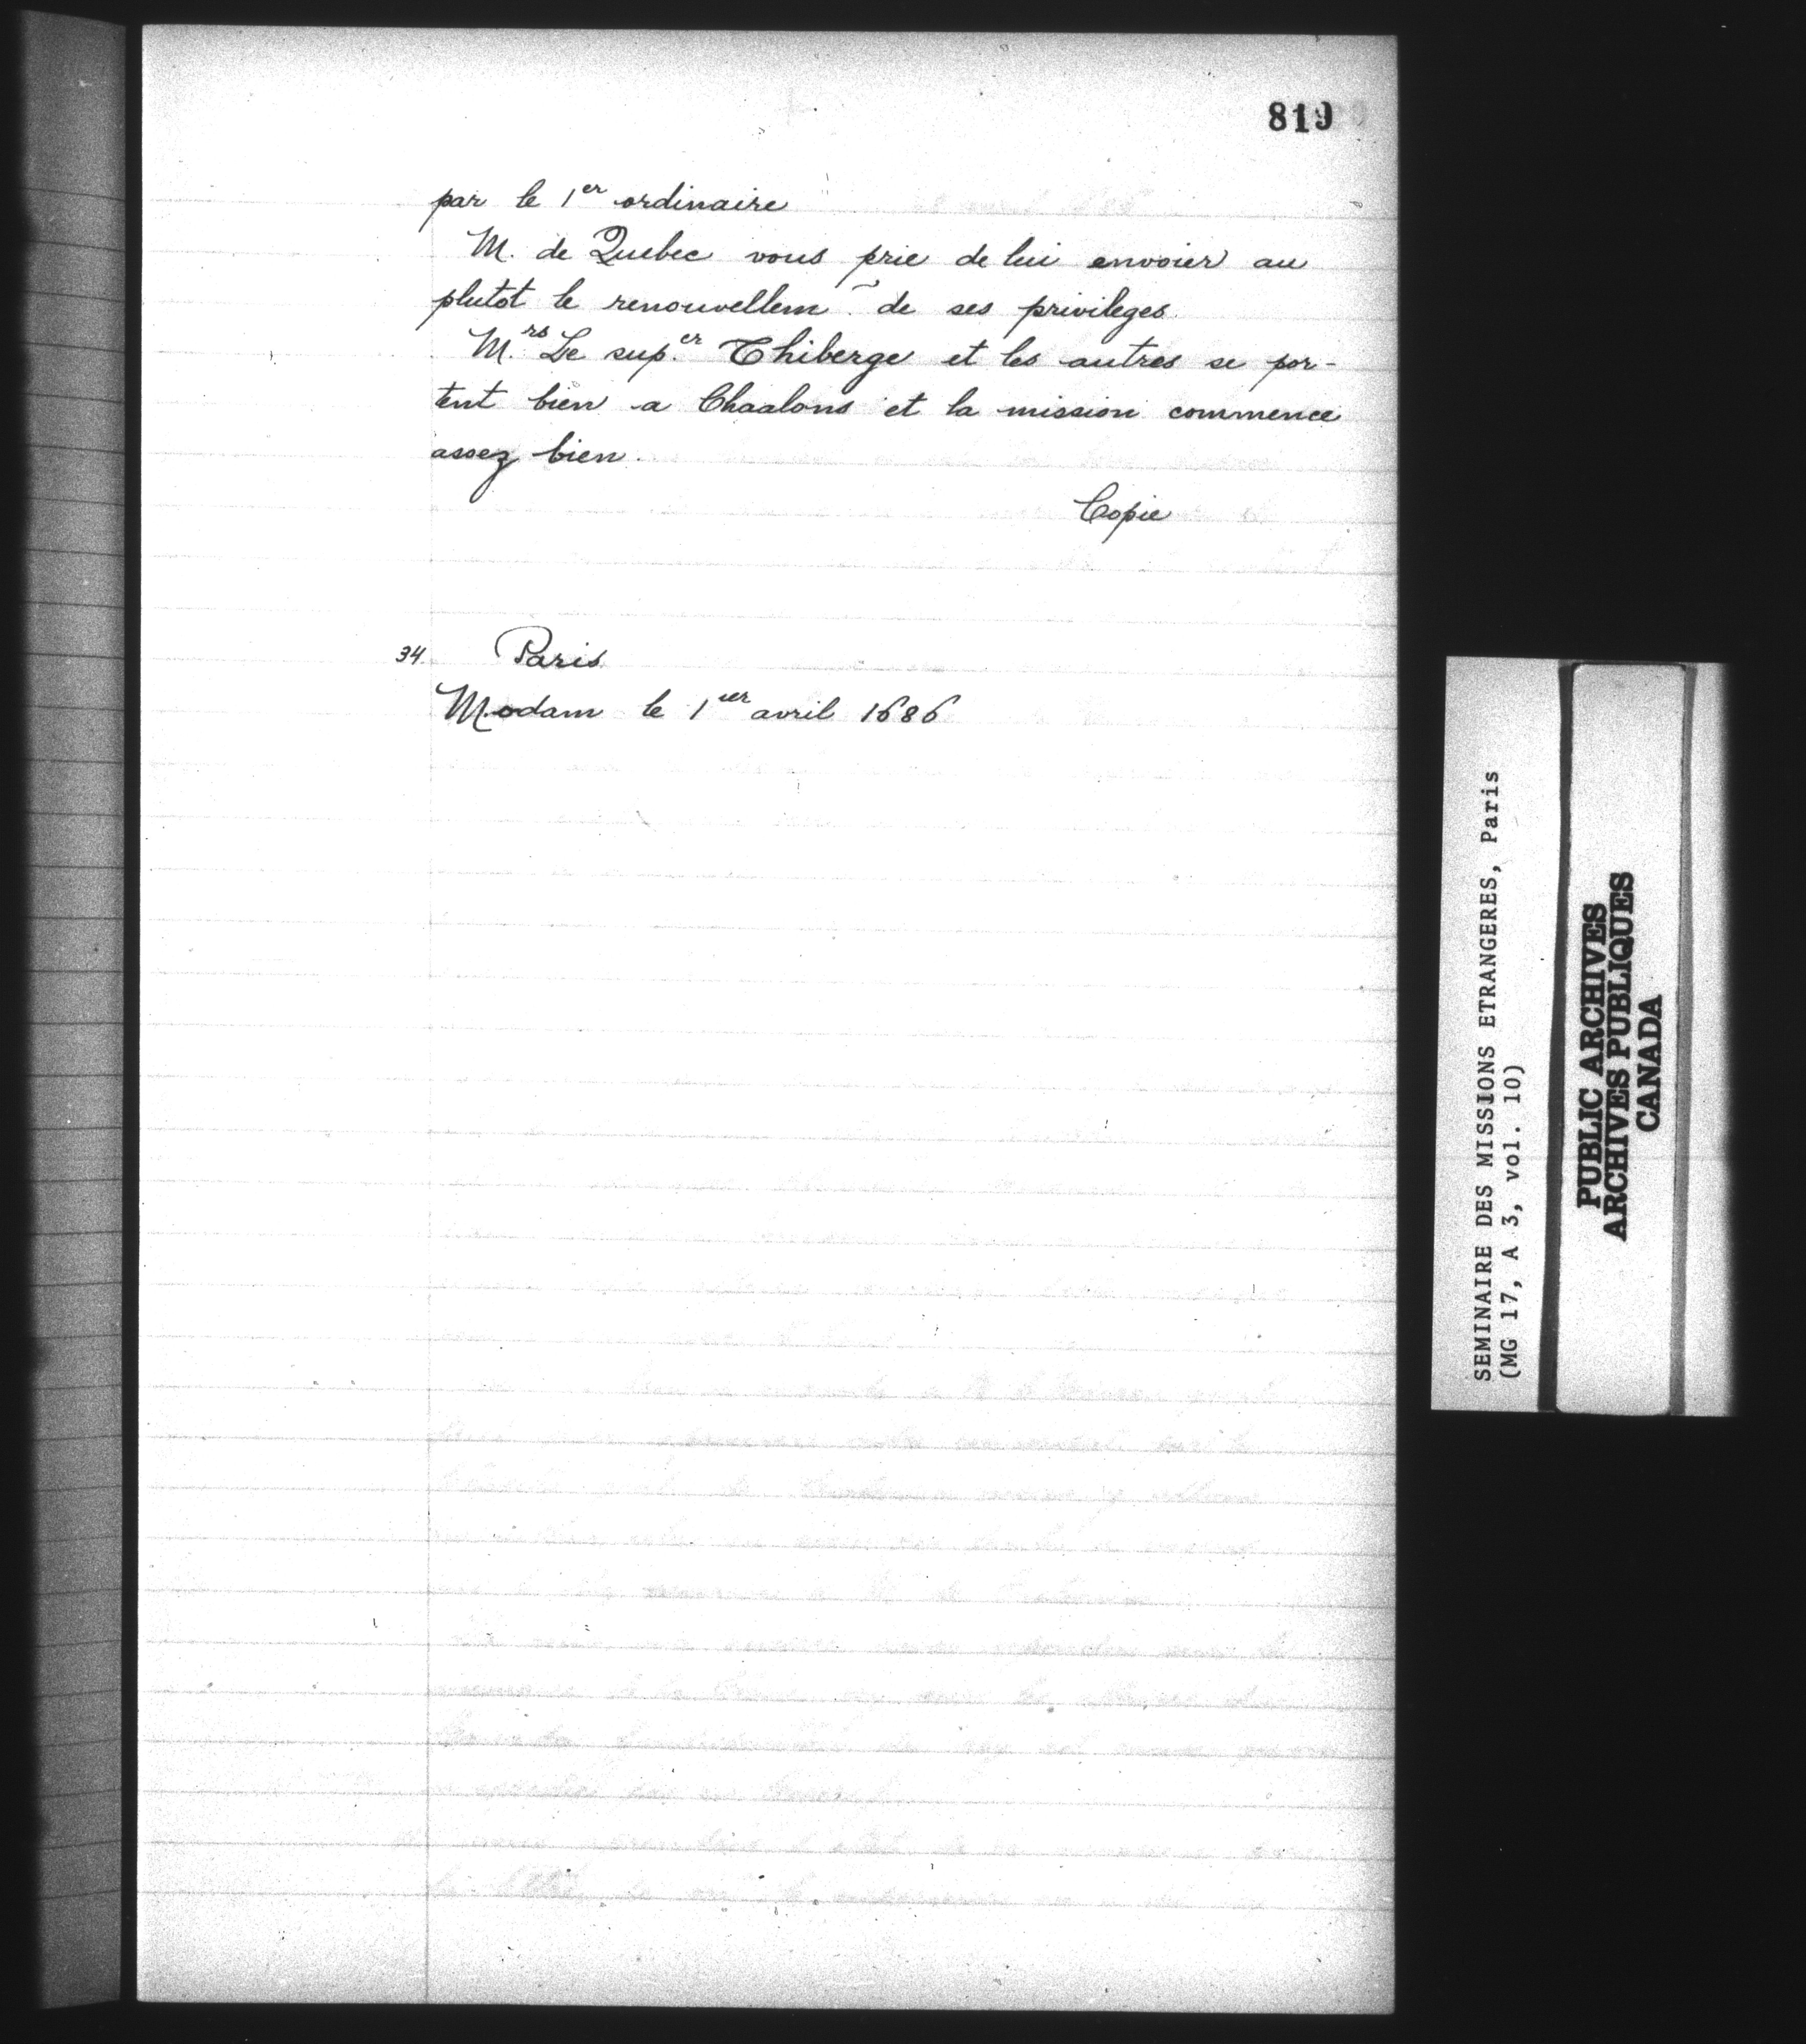 819
par le 1er ordinaire
M. de Quebec vous prie de lui envoier au
plutot le renouvellem~ de ses privileges.
M.rs Le sup.er Thiberge et les autres se por-
tent bien a Chaalons et la mission commence
assez bien.
Copie
34. Paris
Modam le 1ier avril 1686
SEMINAIRE DES MISSIONS ETRANGERES, Paris
(MG 17, A 3, vol. 10)
PUBLIC ARCHIVES
ARCHIVES PUBLIQUES
CANADA